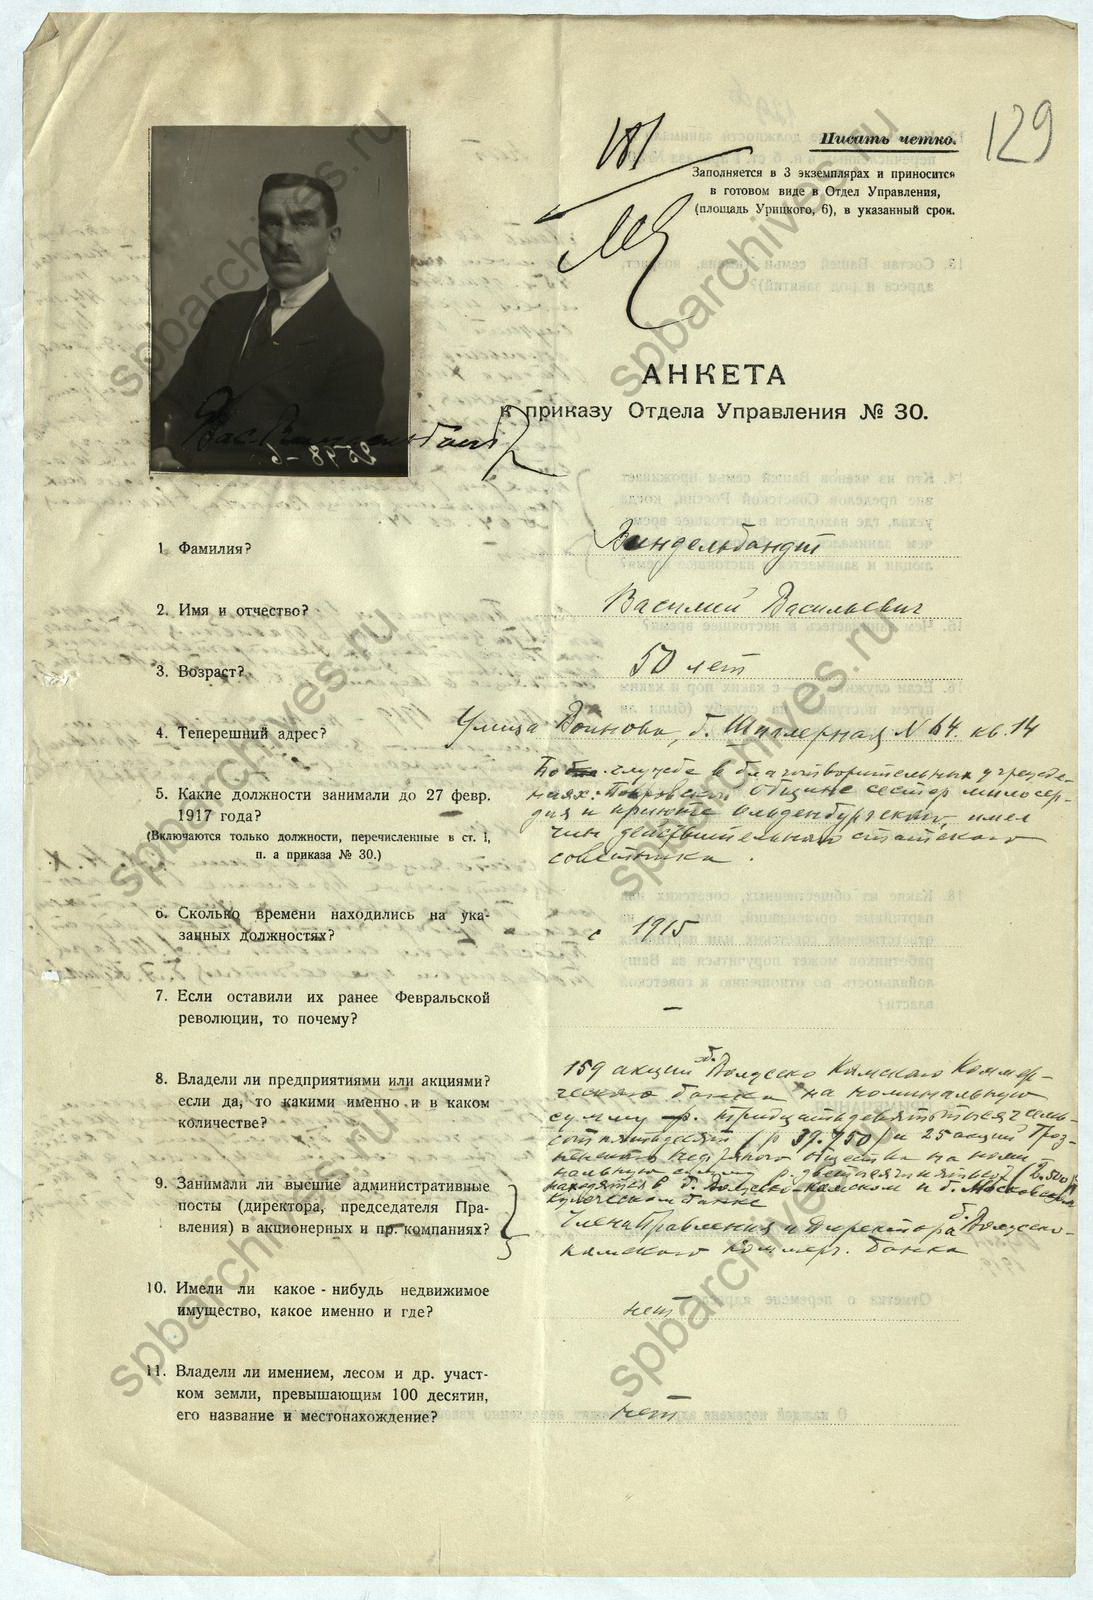 129
181
Писать четко.
Заполняется в 3 экземплярах и приносится
в готовом виде в Отдел Управления,
(площадь Урицкого, 6), в указанный срок.
АНКЕТА
к приказу Отдела Управления № 30.
1. Фамилия?
Виндельбандт
2. Имя и отчество?
Василий Васильевич
3. Возраст?
50 лет
4. Теперешний адрес?
Улица Воинова, б. Шпалерная № 64. кв. 14
5. Какие должности занимали до 27 февр.
1917 года?
(Включаются только должности, перечисленные в ст. 1,
п. а приказа № 30.)
По службе в благотворительных учрежде-
ниях: Покровской общине сестер милосер-
дия и приюте Ольденбургского, имел
чин действительного статского
советника.
6. Сколько времени находились на ука-
занных должностях?
с 1915
7. Если оставили их ранее Февральской
революции, то почему?
—
8. Владели ли предприятиями или акциями?
если да, то какими именно и в каком
количестве?
159 акций б. Волжско Камского Коммер-
ческого банка на номинальную
сумму р. тридцатьдевятьтысячсемь-
сотпятьдесят (р 39.750) и 25 акций Гроз-
ненского нефтяного общества на номи
нальную сумму р. дветысячипятьсот (2.500)
находятся в б. Волжско-Камском и б. Московском
купеческом банке
9. Занимали ли высшие административные
посты (директора, председателя Пра-
вления) в акционерных и пр. компаниях?
Члена Правления и Директора б. Волжско-
камского коммерч. банка
10. Имели ли какое-нибудь недвижимое
имущество, какое именно и где?
нет
11. Владели ли имением, лесом и др. участ-
ком земли, превышающим 100 десятин,
его название и местонахождение?
нет
spbarchives.ru